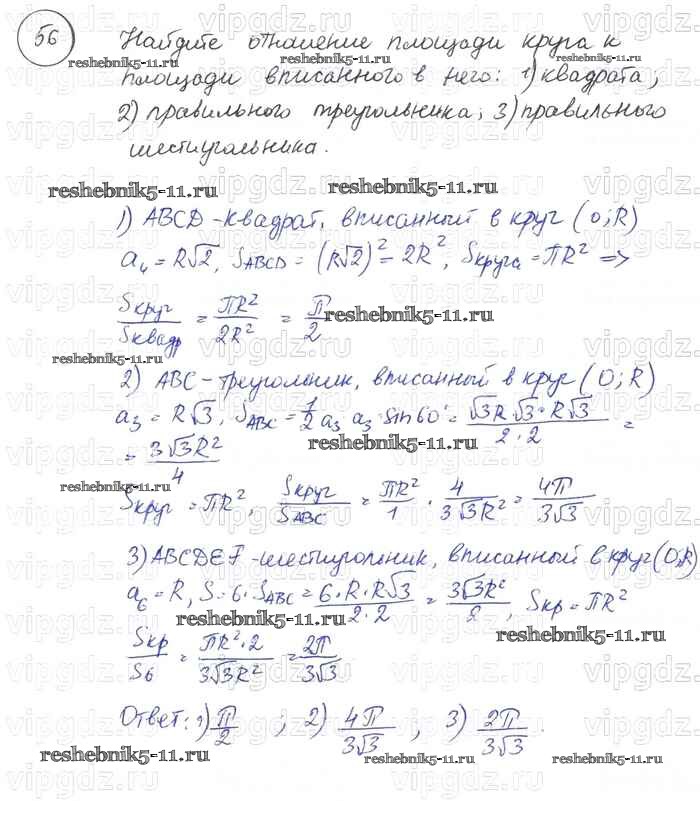 56 Найдите отношение площади круга к
площади вписанного в него: 1) квадрата;
2) правильного треугольника; 3) правильного
шестиугольника.
reshebnik5-11.ru reshebnik5-11.ru
1) ABCD - квадрат, вписанный в круг (O;R)
a₄ = R√2, S_ABCD = (R√2)² = 2R², Sкруга = πR² =>
Sкруг/Sквадр = πR²/2R² = π/2 reshebnik5-11.ru
reshebnik5-11.ru
2) ABC - треугольник, вписанный в круг (O;R)
a₃ = R√3, S_ABC = 1/2 a₃ · a₃ · sin60° = √3R · √3 · R√3/2·2 =
= 3√3R²/4 reshebnik5-11.ru
reshebnik5-11.ru
Sкруг = πR², Sкруг/S_ABC = πR²/1 · 4/3√3R² = 4π/3√3
3) ABCDEF - шестиугольник, вписанный в круг (O;R)
a₆ = R, S = 6 · S_ABC = 6·R·R√3/2·2 = 3√3R²/2, Sкр = πR²
reshebnik5-11.ru reshebnik5-11.ru
Sкр/S₆ = πR²·2/3√3R² = 2π/3√3
Ответ: 1) π/2; 2) 4π/3√3, 3) 2π/3√3.
reshebnik5-11.ru reshebnik5-11.ru reshebnik5-11.ru